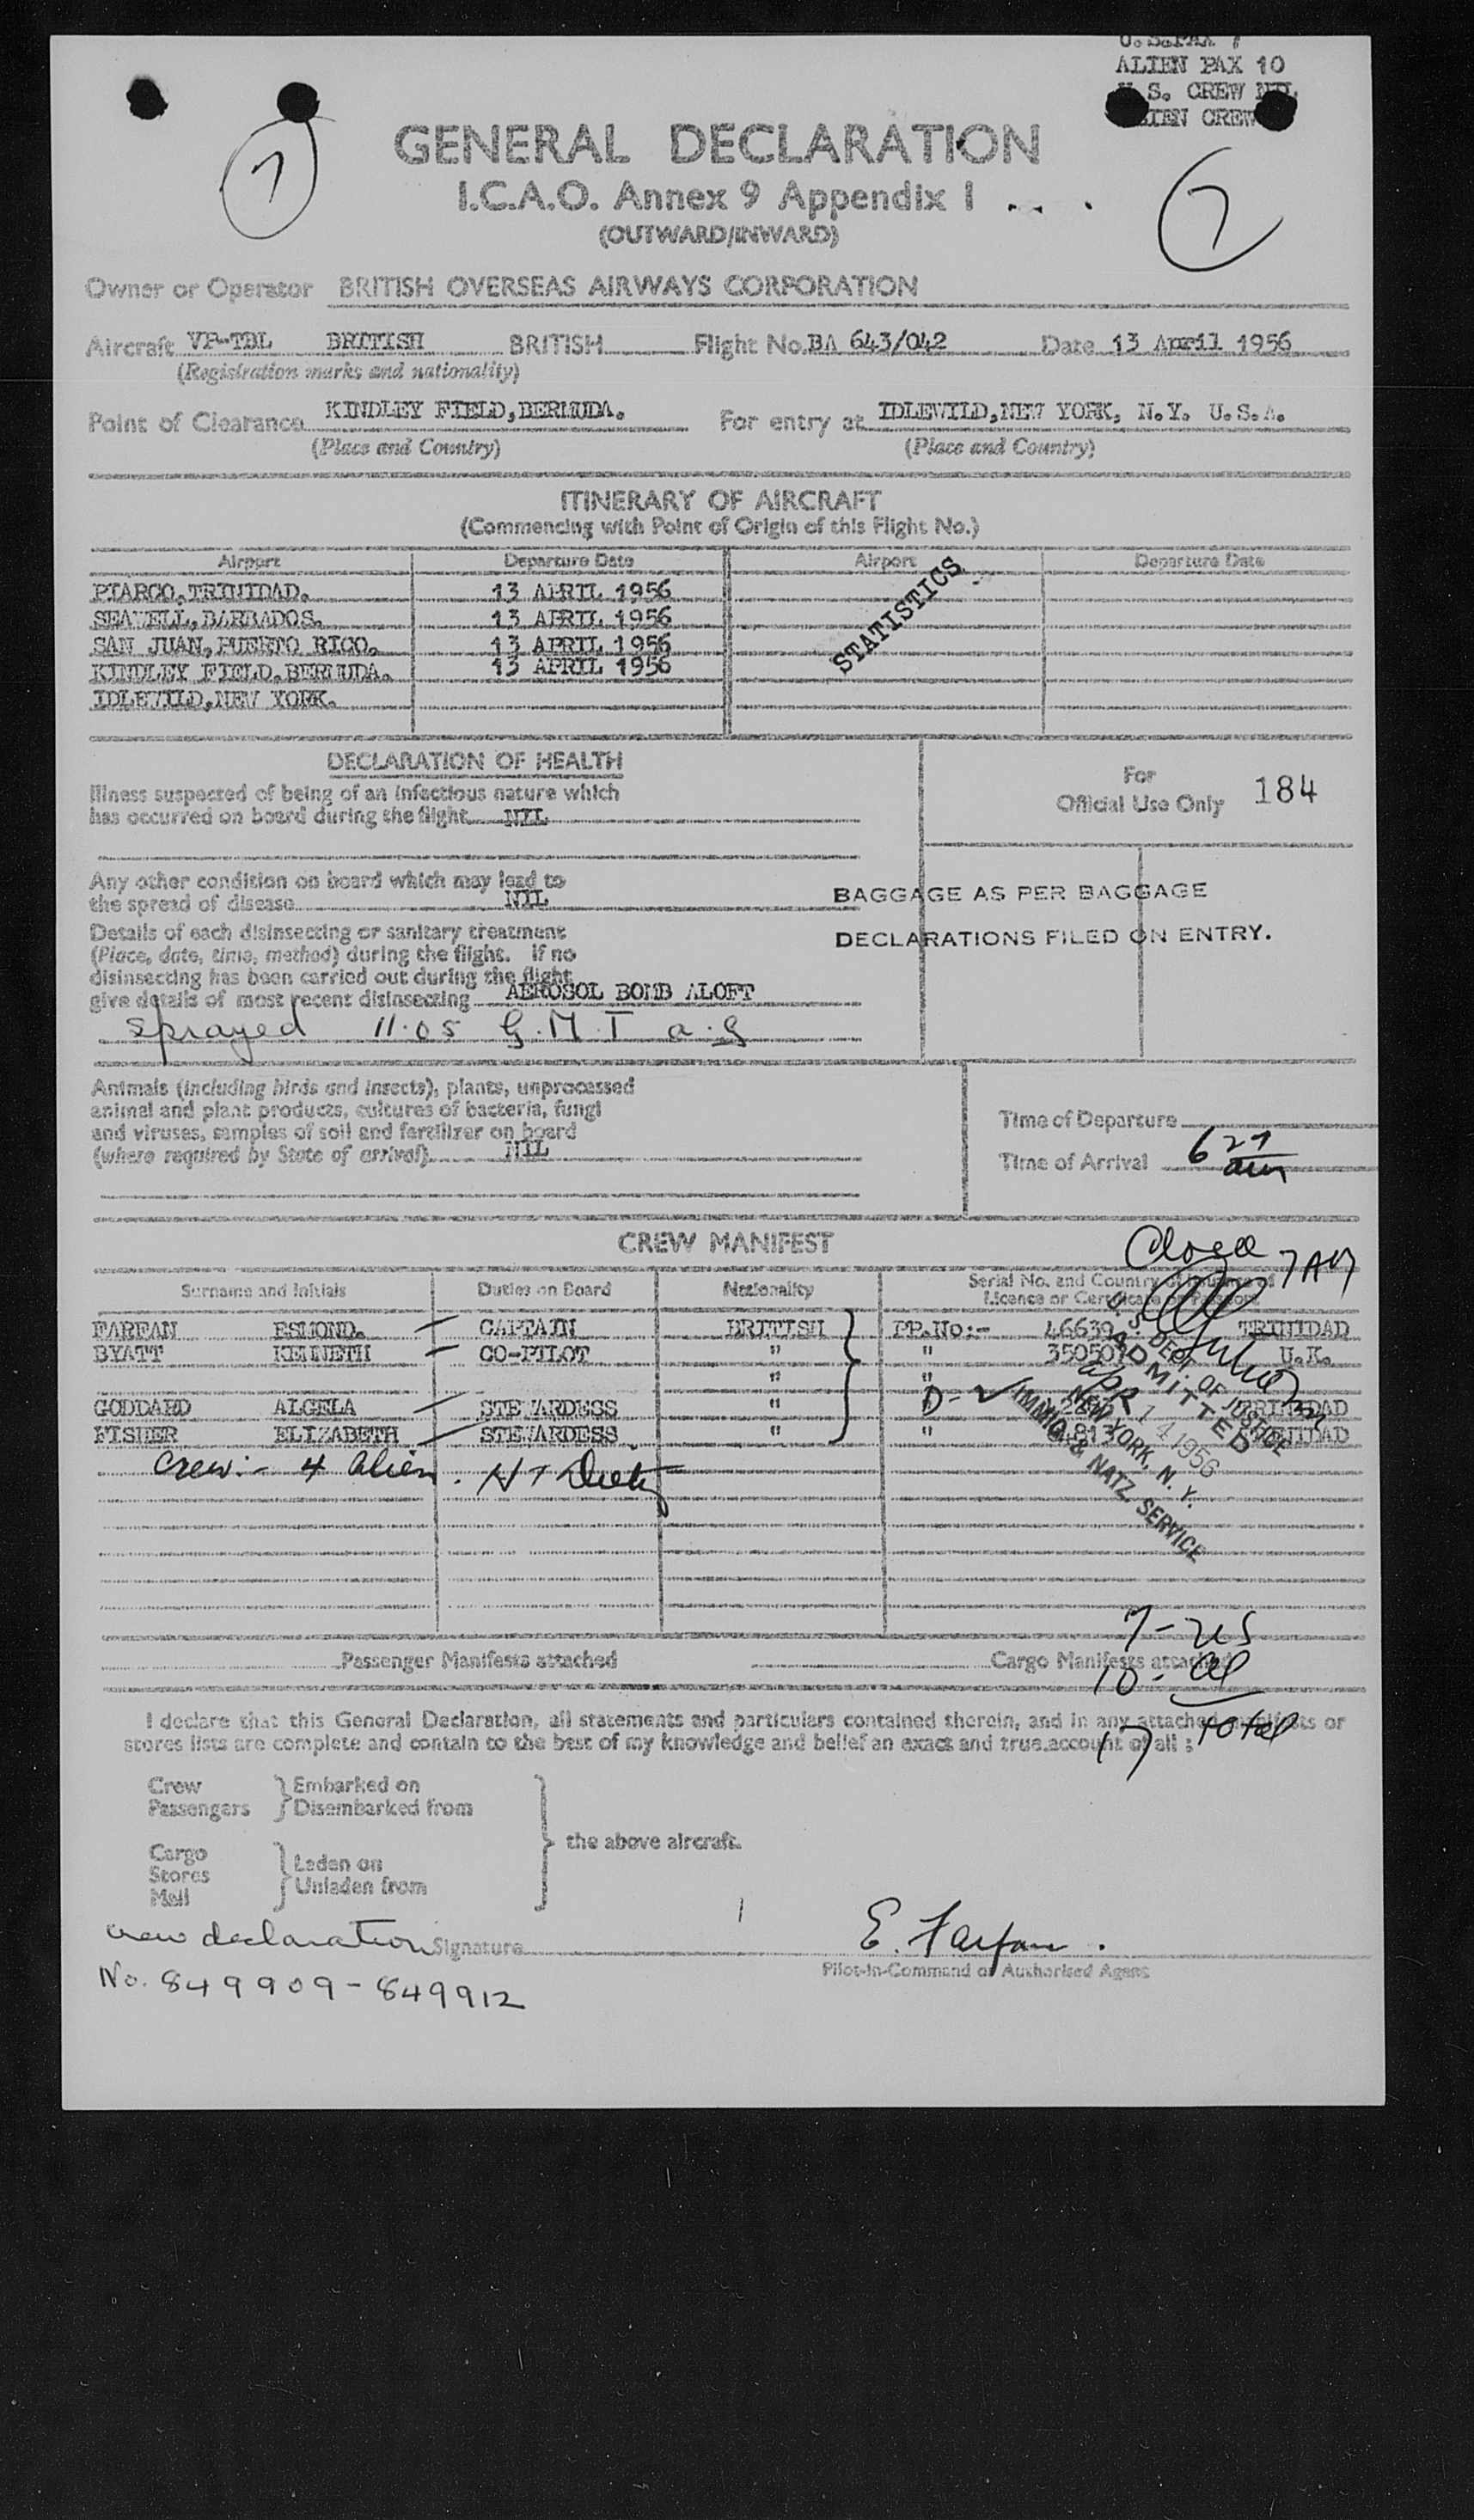 U.S.PAX 7
ALIEN PAX 10
S. CREW NIL
CREW
7
GENERAL DECLARATION
I.C.A.O. Annex 9 Appendix 1
7
(OUTWARD/INWARD)
Owner or Operator BRITISH OVERSEAS AIRWAYS CORPORATION
Aircraft VP-TBL BRITISH BRITISH Flight No. BA 643/042 Date 13 April 1956
(Registration marks and nationality)
Point of Clearance KINDLEY FIELD, BERMUDA. For entry at IDLEWILD, NEW YORK, N.Y. U.S.A.
(Place and Country) (Place and Country)
ITINERARY OF AIRCRAFT
(Commencing with Point of Origin of this Flight No.)
Airport Departure Date Airport Departure Date
PIARCO, TRINIDAD. 13 APRIL 1956
SEAWELL, BARBADOS. 13 APRIL 1956
SAN JUAN, PUERTO RICO. 13 APRIL 1956
KINDLEY FIELD, BERMUDA. 13 APRIL 1956
IDLEWILD, NEW YORK.
STATISTICS
DECLARATION OF HEALTH
Illness suspected of being of an infectious nature which
has occurred on board during the flight NIL
For
Official Use Only 184
Any other condition on board which may lead to
the spread of disease NIL
BAGGAGE AS PER BAGGAGE
DECLARATIONS FILED ON ENTRY.
Details of each disinsecting or sanitary treatment
(Place, date, time, method) during the flight. If no
disinsecting has been carried out during the flight
give details of most recent disinsecting AEROSOL BOMB ALOFT
Sprayed 11.05 G.M.T a.g
Animals (including birds and insects), plants, unprocessed
animal and plant products, cultures of bacteria, fungi
and viruses, samples of soil and fertilizer on board
(where required by State of arrival) NIL
Time of Departure
Time of Arrival 6 27 am
CREW MANIFEST
Closed 7 AM
Surname and Initials Duties on Board Nationality Serial No. and Country of Issuance of
Licence or Certificate or Passport
FARFAN ESMOND. CAPTAIN BRITISH PP.No:- 46639 TRINIDAD
BYATT KENNETH CO-PILOT " " U.K.
" "
GODDARD ALGELA STEWARDESS " D- TRINIDAD
FISHER ELIZABETH STEWARDESS " " TRINIDAD
U.S. DEPT. OF JUSTICE
ADMITTED
APR 14 1956
NEW YORK, N.Y.
IMMIG. & NATZ. SERVICE
Crew:- 4 alien.
7 - US
Passenger Manifests attached Cargo Manifests attached
10 - al
17 total
I declare that this General Declaration, all statements and particulars contained therein, and in any attached manifests or
stores lists are complete and contain to the best of my knowledge and belief an exact and true account of all :
Crew
Passengers
Embarked on
Disembarked from
the above aircraft.
Cargo
Stores
Mail
Laden on
Unladen from
crew declaration Signature E. Farfan.
Pilot-in-Command or Authorised Agent
No. 849909-849912